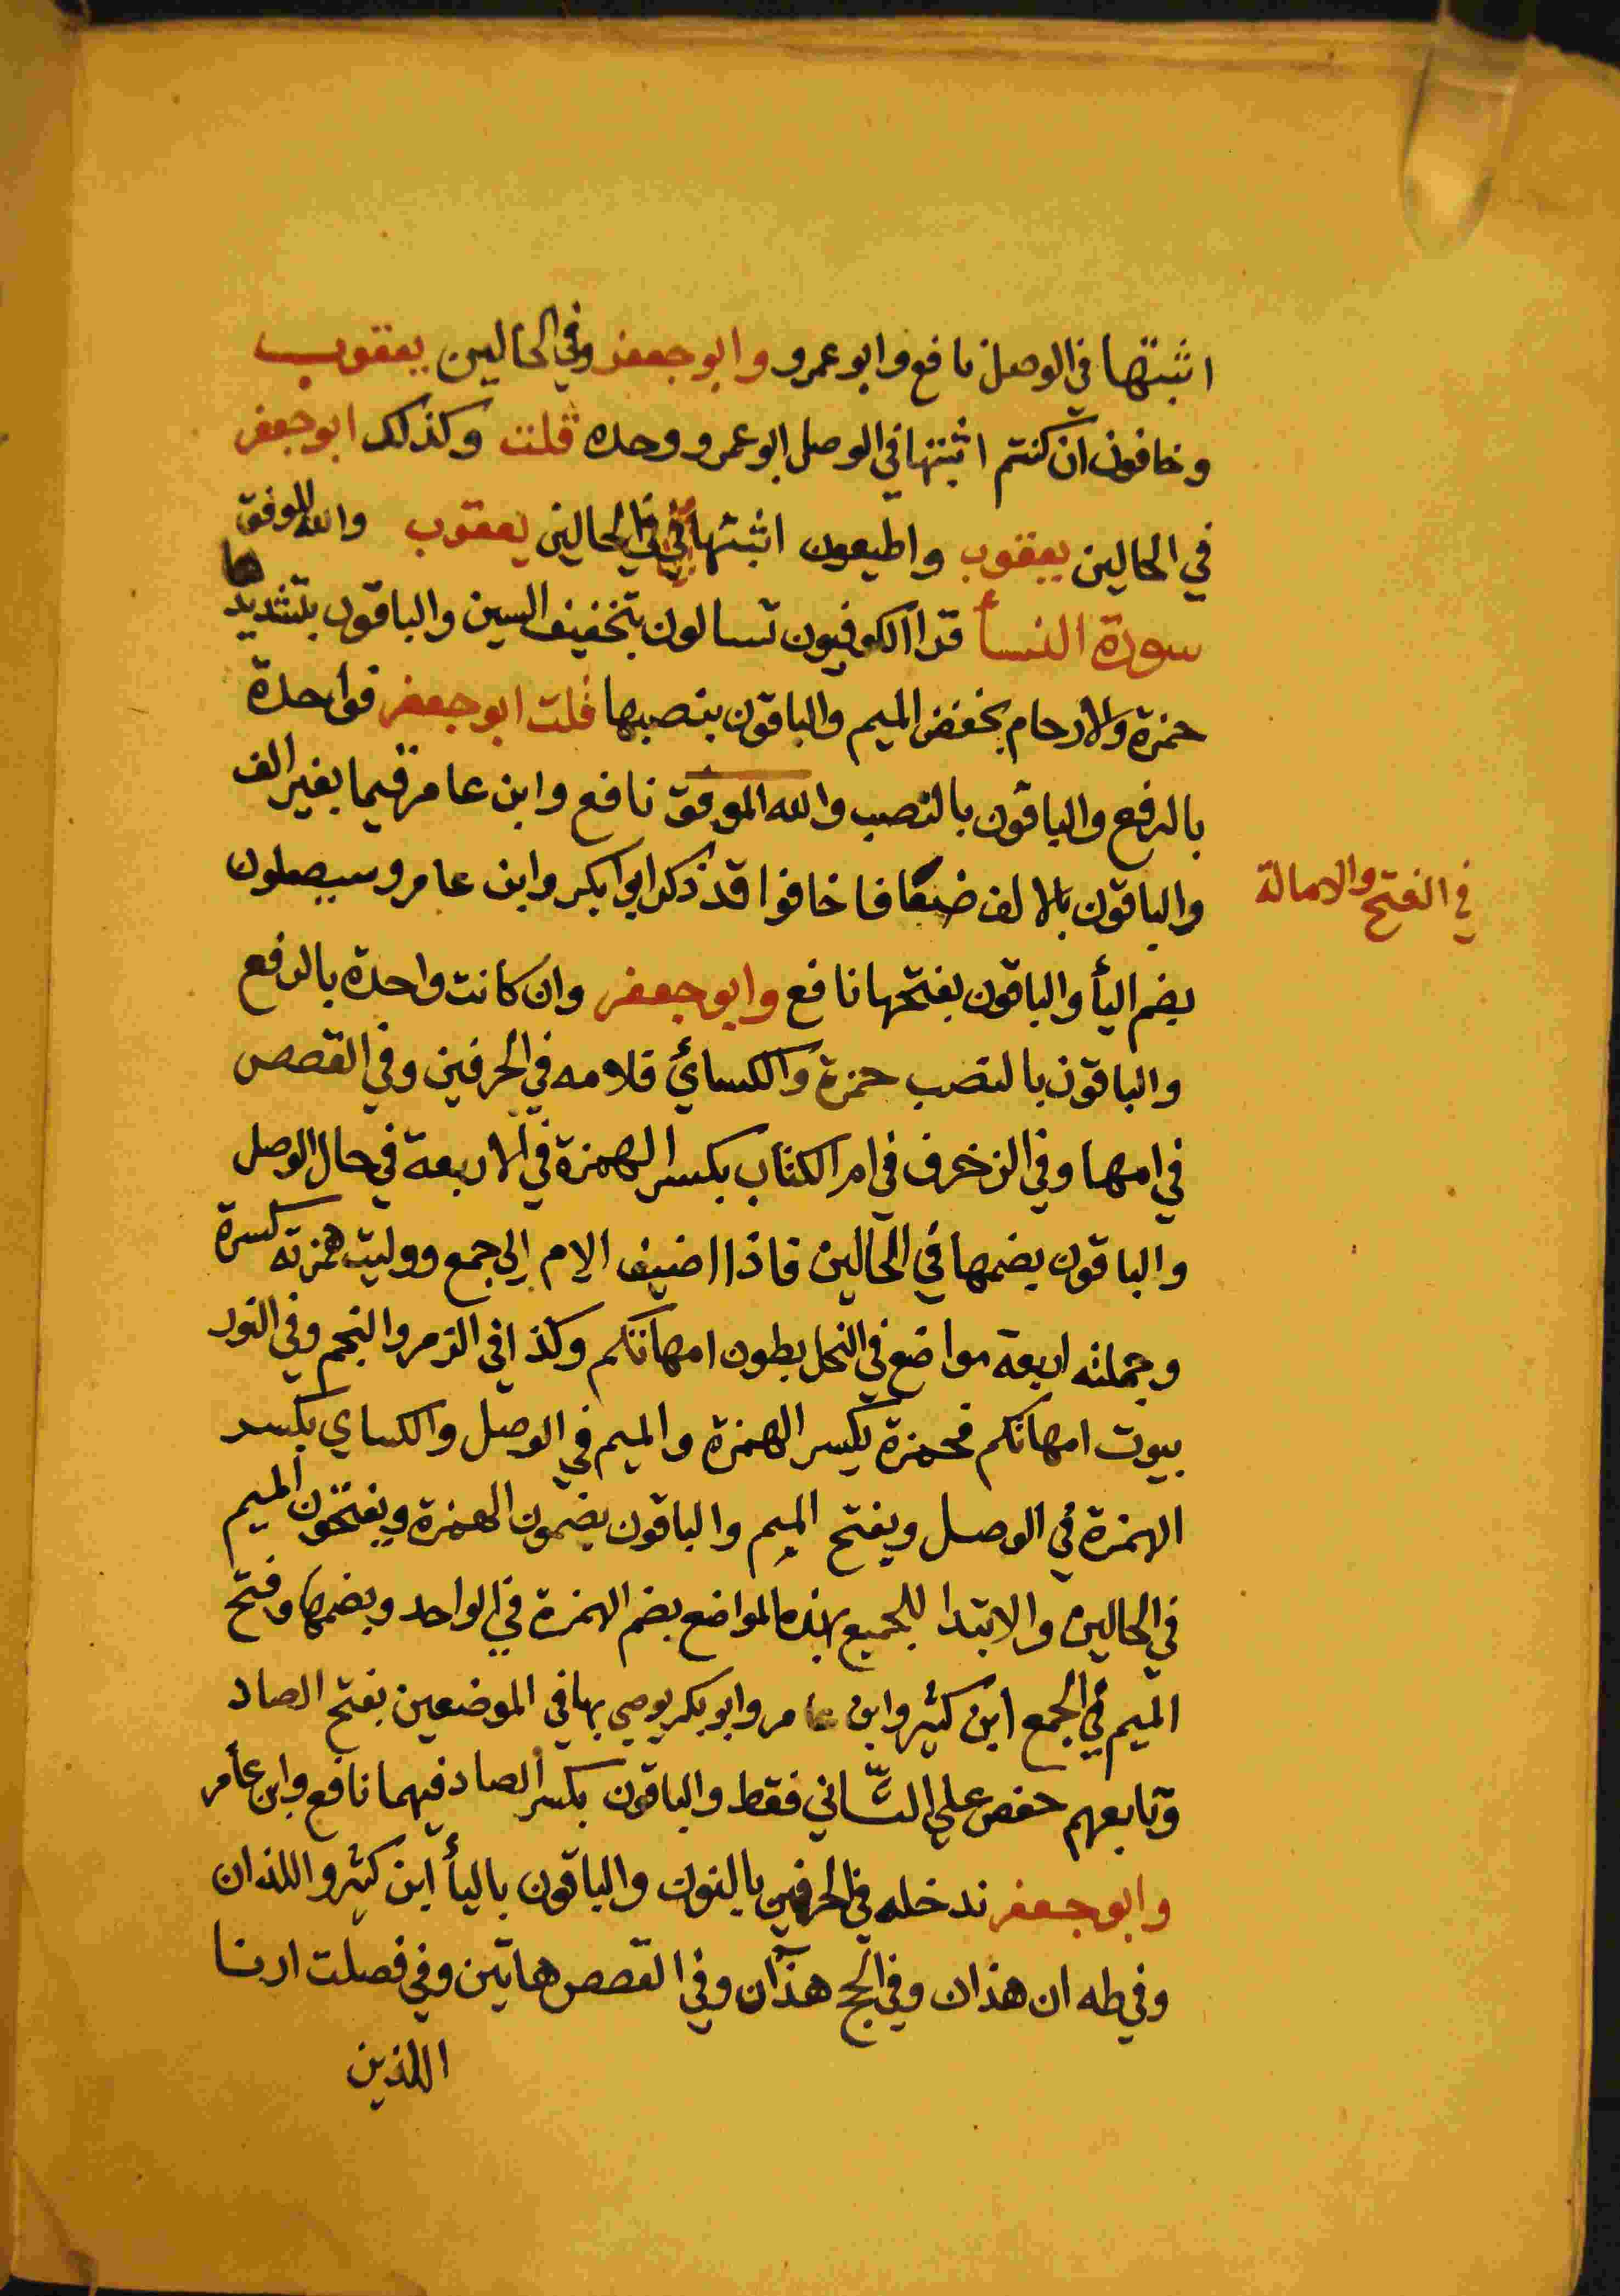 اثبتها في الوصل نافع وابو عمرو وابو جعفر وفي الحالين يعقوب
وخافون ان كنتم اثبتها في الوصل ابو عمرو وحده قلت وكذلك ابو جعفر
في الحالين يعقوب واطيعون اثبتها في الحالين يعقوب والله الموفق
سورة النسأ قرا الكوفيون تسالون بتخفيف السين والباقون بتشديدها
حمزة والارحام بخفض الميم والباقون بنصبها قلت ابو جعفر فواحدة
بالرفع والباقون بالنصب والله الموفق نافع وابن عامر قيما بغير الف
والباقون بالالف ضعافا خافوا قد ذكر ابوا بكر وابن عامر وسيصلون
في الفتح والامالة
بضم اليأ والباقون بفتحها نافع وابو جعفر وان كانت واحدة بالرفع
والباقون بالنصب حمزة والكسائي فلامه في الحرفين وفي القصص
في امها وفي الزخرف في ام الكتاب بكسر الهمزة في الاربعة في حال الوصل
والباقون بضمها في الحالين فاذا اضيف الام الي جمع ووليت همزته كسرة
وجملته اربعة مواضع في النحل بطون امهاتكم وكذا في الزمر والنجم وفي النور
بيوت امهاتكم فحمزة يكسر الهمزة والميم في الوصل والكساي بكسر
الهمزة في الوصل ويفتح الميم والباقون يضمون الهمزة ويفتحون الميم
في الحالين والابتدا للجميع بهذه المواضع بضم الهمزة في الواحد وبضمها وفتح
الميم في الجمع ابن كثير وابن عامر وابو بكر يوصي بها في الموضعين بفتح الصاد
وتابعهم حفص علي الثاني فقط والباقون بكسر الصاد فيهما نافع وابن عامر
وابو جعفر ندخله في الحرفين بالنون والباقون باليأ ابن كثير واللذان
وفي طه ان هذان وفي الحج هذان وفي القصص هاتين وفي فصلت ارنا
اللذين